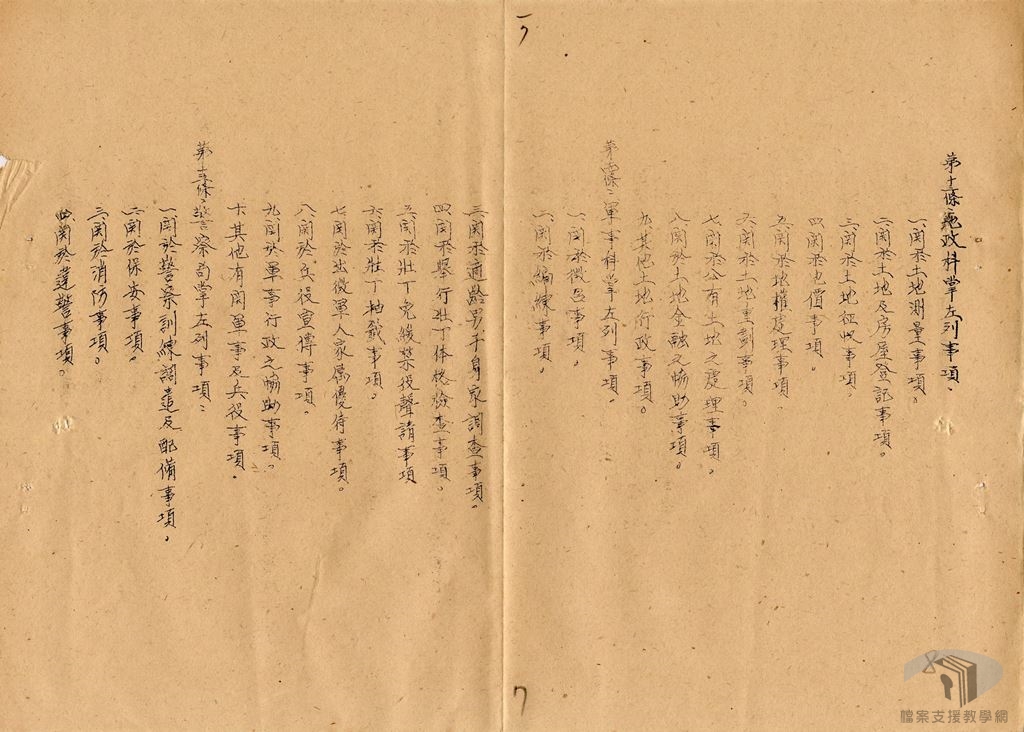 第十一條:地政科掌左列事項.
一、関於土地測量事項。
二、関於土地及房屋登記事項。
三、関於土地征收事項.
四、関於地價事項。
五、関於地權處理事項.
六、関於土地重劃事項.
七、関於公有土地之處理事項。
八、関於土地金融之協助事項。
九、其他土地行政事項。
軍事科掌左列事項。
一、関於徵召事項。
二、関於編練事項.
三、関於適齡男子身家調查事項。
四、関於舉行壯丁体格檢查事項。
五、関於壯丁免緩禁役聲請事項
六、関於壯丁抽籤事項.
七、関於出徵軍人家屬優待事項。
八、関於兵役宣傳事項.
九、関於軍事行政之協助事項.
十、其他有関軍事及兵役事項.
警察局掌左列事項:
一、関於警察訓練調遣及配備事項。
二、関於保安事項。
三、関於消防事項。
四、関於違警事項。
7
檔案支援教學網